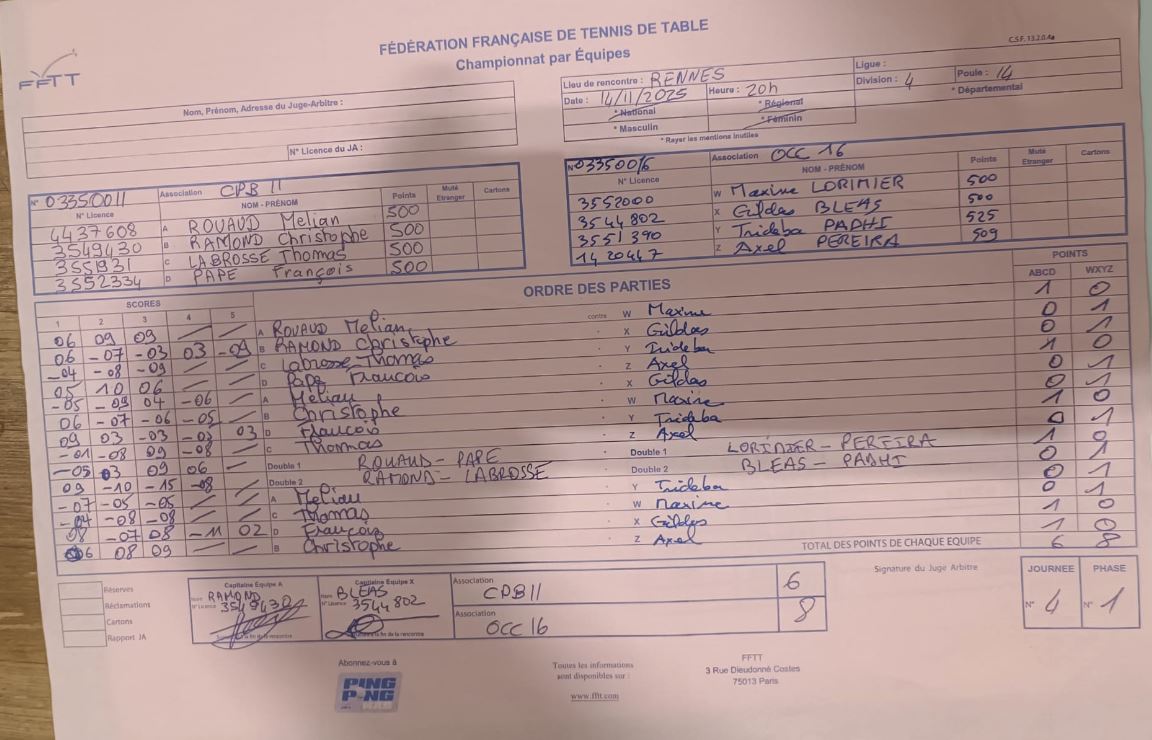 FÉDÉRATION FRANÇAISE DE TENNIS DE TABLE
Championnat par Équipes
C.S.F. 13.2.0.4a
FFTT
Nom, Prénom, Adresse du Juge-Arbitre :
N° Licence du JA :
Lieu de rencontre : RENNES
Ligue :
Date : 14/11/2025 Heure : 20h
Division : 4 Poule : 14
* National * Régional * Départemental
* Masculin * Féminin
* Rayer les mentions inutiles
N° 03350011 Association CPB 11
N° Licence NOM - PRÉNOM Points Muté Etranger Cartons
4437608 A ROUAUD Melian 500
3549430 B RAMOND Christophe 500
C LABROSSE Thomas 500
3552334 D PAPE François 500
N° 03350016 Association OCC 16
N° Licence NOM - PRÉNOM Points Muté Etranger Cartons
3552000 W Maxime LORIMIER 500
3544802 X Gildas BLEAS 500
3551390 Y Trideba PADHI 525
1420447 Z Axel PEREIRA 509
SCORES ORDRE DES PARTIES POINTS
1 2 3 4 5 ABCD WXYZ
06 09 09 — — A ROUAUD Melian contre W Maxime 1 0
06 -07 -03 03 -09 B RAMOND Christophe - X Gildas 0 1
-04 -08 -09 — — C Labrosse Thomas - Y Trideba 0 1
05 10 06 — — D Pape François - Z Axel 1 0
-05 -09 04 -06 — A Melian - X Gildas 0 1
06 -07 -06 -05 — B Christophe - W Maxime 0 1
09 03 -03 -03 03 D François - Y Trideba 1 0
-01 -08 09 -08 — C Thomas - Z Axel 0 1
-05 03 09 06 — Double 1 ROUAUD - PAPE - Double 1 LORIMIER - PEREIRA 1 0
09 -10 -15 -08 — Double 2 RAMOND - LABROSSE - Double 2 BLEAS - PADHI 0 1
-07 -05 -05 — — A Melian - Y Trideba 0 1
-04 -08 -08 — — C Thomas - W Maxime 0 1
08 -07 08 -11 02 D François - X Gildas 1 0
06 08 09 — — B Christophe - Z Axel 1 0
TOTAL DES POINTS DE CHAQUE EQUIPE 6 8
Réserves
Réclamations
Cartons
Rapport JA
Capitaine Equipe A
Nom RAMOND
N° Licence 3549430
Capitaine Equipe X
Nom BLEAS
N° Licence 3544802
Association CPB 11 6
Association OCC 16 8
Signature du Juge Arbitre
JOURNEE PHASE
N° 4 N° 1
Abonnez-vous à
PING PONG
Toutes les informations
sont disponibles sur :
www.fftt.com
FFTT
3 Rue Dieudonné Costes
75013 Paris